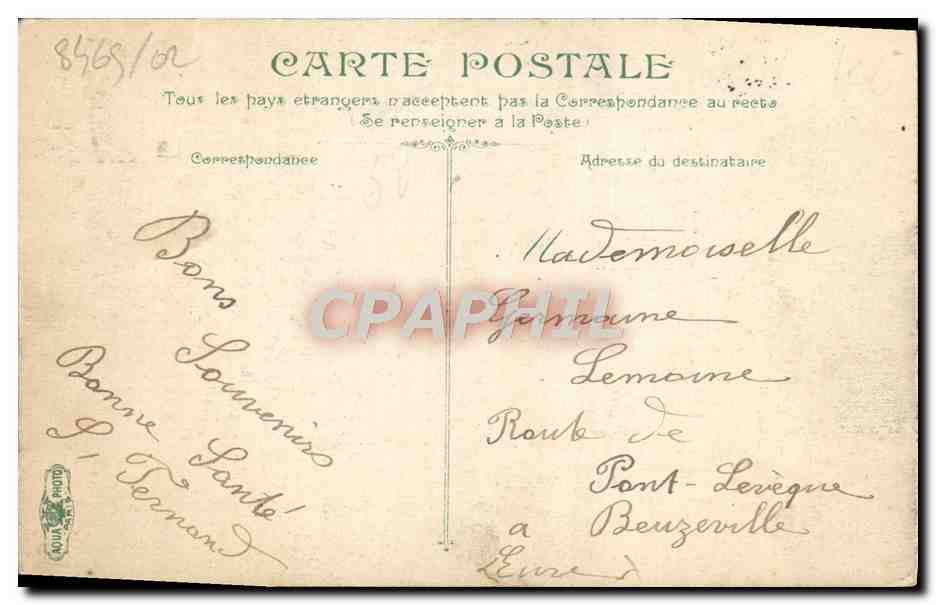 8469/02
CARTE POSTALE
Tous les pays etrangers n'acceptent pas la Correspondance au recto
(Se renseigner à la Poste)
Correspondance
Adresse du destinataire
50
Bons
Souvenirs
Bonne
Santé
Fernand
Mademoiselle
Germaine
Lemoine
Route de
Pont-Levèque
a Beuzeville
Eure
CPAPHIL
AQUA PHOTO
PARIS